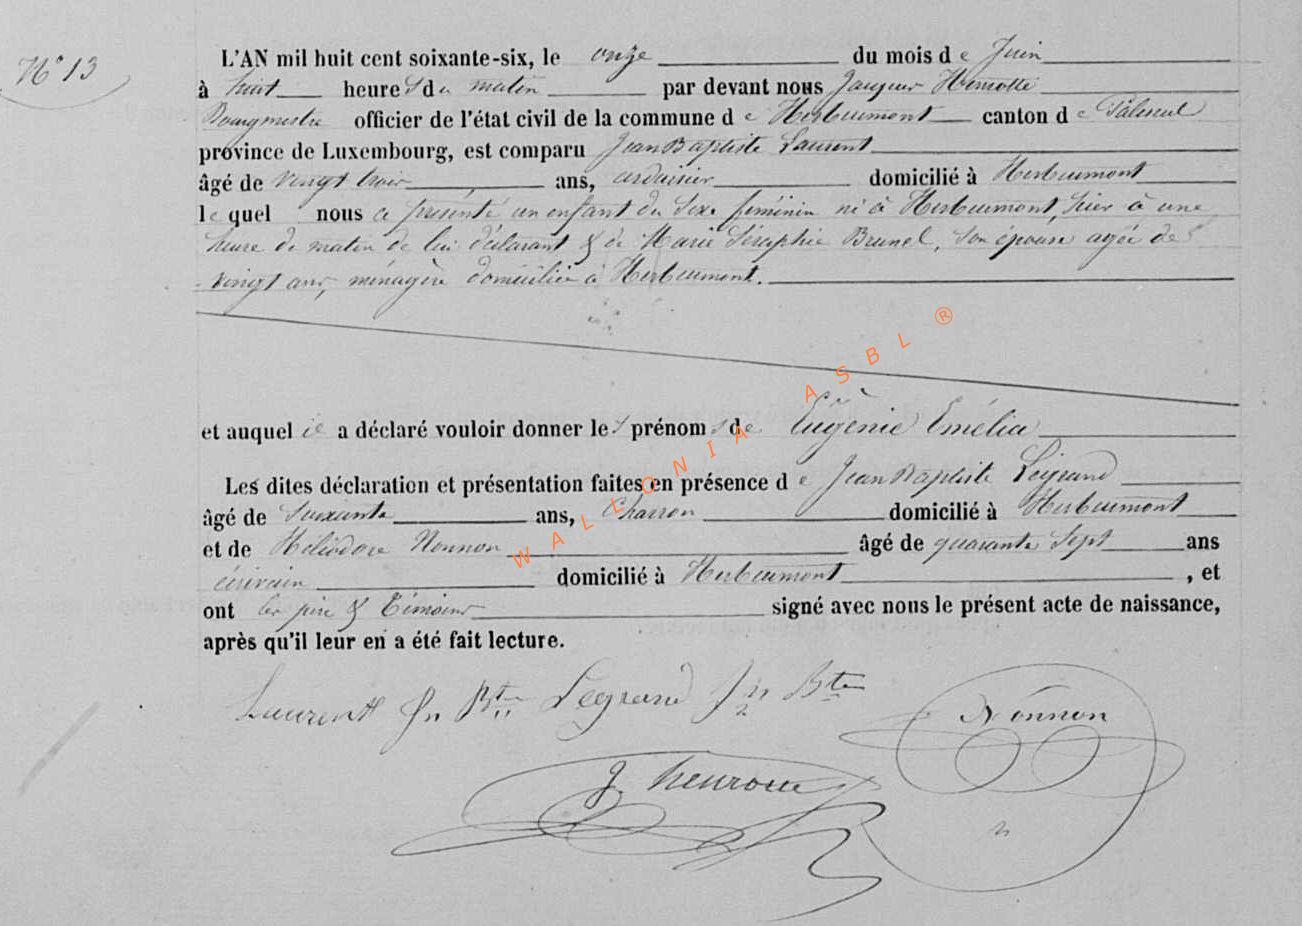 N° 13
L'AN mil huit cent soixante-six, le onze du mois de Juin
à huit heures du matin par devant nous Jacques
Bourgmestre officier de l'état civil de la commune de Herbeumont canton de Paliseul
province de Luxembourg, est comparu Jean Baptiste Laurent
âgé de vingt trois ans, ardoisier domicilié à Herbeumont
lequel nous a présenté un enfant du sexe féminin né à Herbeumont, hier à une
heure de matin de lui déclarant & de Marie Séraphie Brunel, son épouse agée de
vingt ans, ménagère domiciliée à Herbeumont.
et auquel il a déclaré vouloir donner les prénoms de Eugènie Emélia
Les dites déclaration et présentation faites en présence de Jean Baptiste Legrand
âgé de Soixante ans, Charron domicilié à Herbeumont
et de Héliodore Nonnon âgé de quarante Sept ans
écrivain domicilié à Herbeumont, et
ont les père & témoins signé avec nous le présent acte de naissance,
après qu'il leur en a été fait lecture.
Laurent Jn Bte Legrand Jn Bte Nonnon
J.
WALLONIA ASBL ®